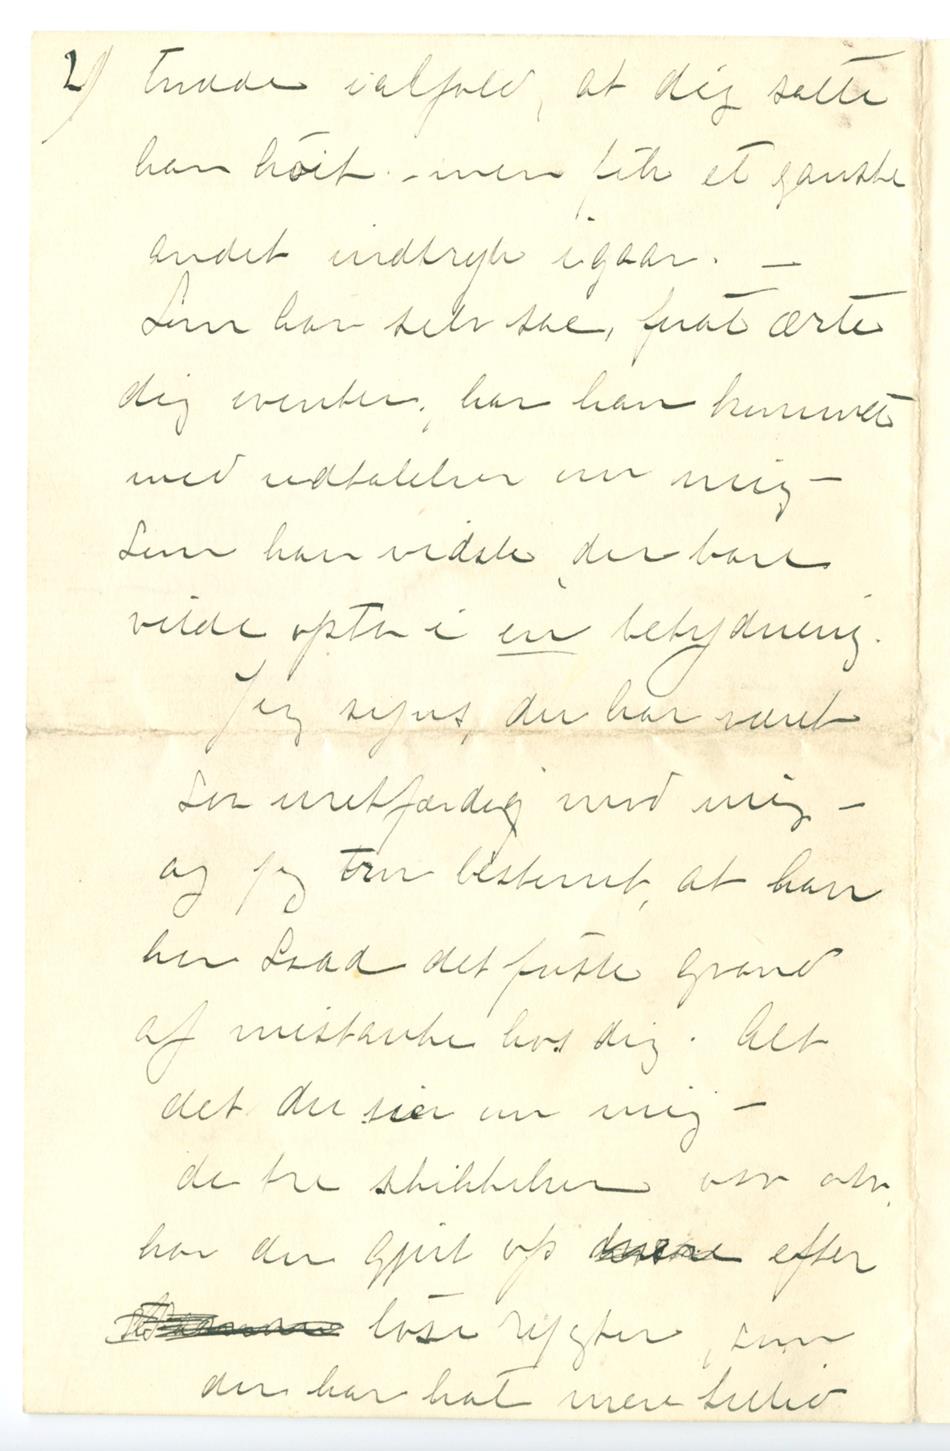 2) trode ialfald, at dig satte
han høit – men fik et ganske
andet indtryk igaar. –
Som han selv sae, for at ærte
dig eventer, har han kommet
med udtalelser om mig –
Som han vidste, du bare
vilde opta i en betydning.
Jeg synes, du har været
saa uretfærdig mod mig –
og jeg tror bestemt, at han
har saad det første grand
af mistanke hos dig. Alt
det du sier om mig –
de tre skikkelser osv osv,
har du gjort op efter
løse rygter, som
du har hat mere tillid